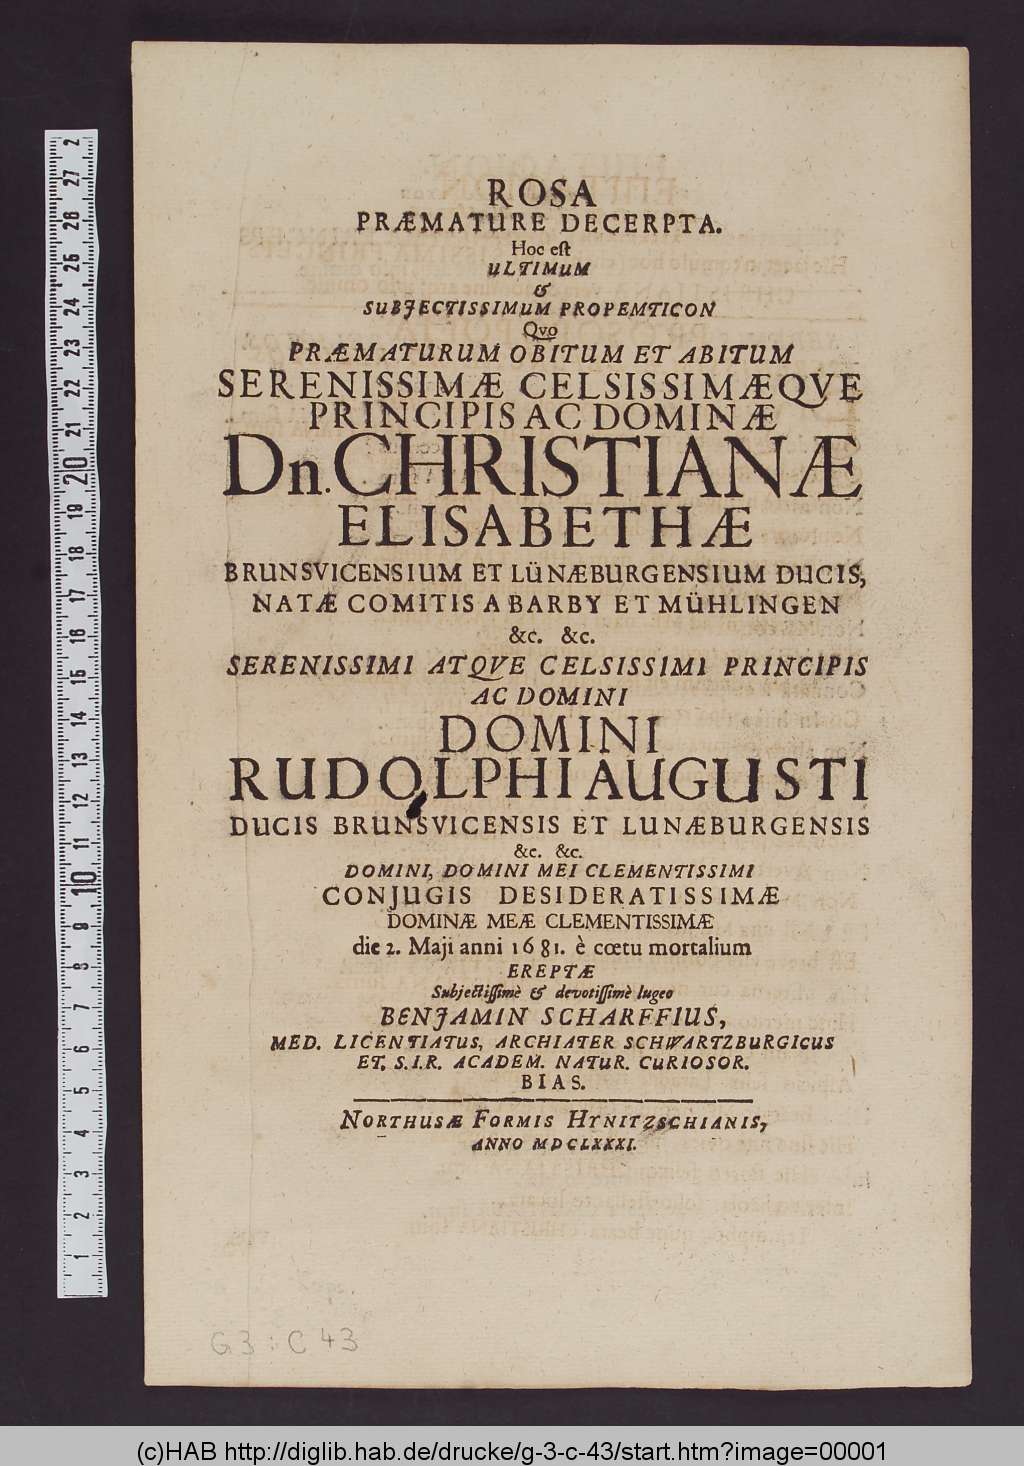 ROSA
PRÆMATURE DECERPTA.
Hoc est
ULTIMUM
&
SUBJECTISSIMUM PROPEMTICON
Qvo
PRÆMATURUM OBITUM ET ABITUM
SERENISSIMÆ CELSISSIMÆQVE
PRINCIPIS AC DOMINÆ
Dn. CHRISTIANÆ
ELISABETHÆ
BRUNSVICENSIUM ET LÜNÆBURGENSIUM DUCIS,
NATÆ COMITIS A BARBY ET MÜHLINGEN
&c. &c.
SERENISSIMI ATQVE CELSISSIMI PRINCIPIS
AC DOMINI
DOMINI
RUDOLPHI AUGUSTI
DUCIS BRUNSVICENSIS ET LUNÆBURGENSIS
&c. &c.
DOMINI, DOMINI MEI CLEMENTISSIMI
CONJUGIS DESIDERATISSIMÆ
DOMINÆ MEÆ CLEMENTISSIMÆ
die 2. Maji anni 1681. è cœtu mortalium
EREPTÆ
Subjectissimè & devotissimè lugeo
BENJAMIN SCHARFFIUS,
MED. LICENTIATUS, ARCHIATER SCHWARTZBURGICUS
ET. S.I.R. ACADEM. NATUR. CURIOSOR.
BIAS.
NORTHUSÆ FORMIS HYNITZSCHIANIS,
ANNO MDCLXXXI.
G 3 : C 43
(c)HAB http://diglib.hab.de/drucke/g-3-c-43/start.htm?image=00001